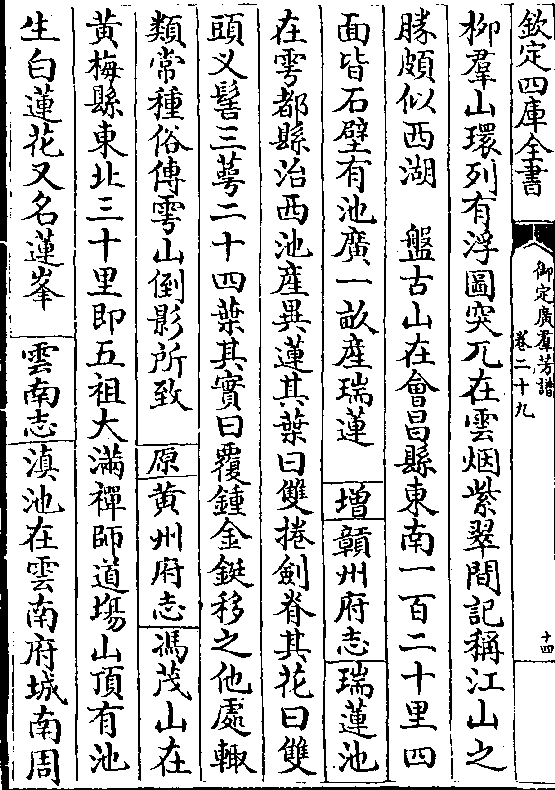 欽定四庫全書
御定廣羣芳譜
卷二十九
十四
柳羣山環列有浮圖突兀在雲烟紫翠間記稱江山之
勝頗似西湖　盤古山在會昌縣東南一百二十里四
面皆石壁有池廣一畝産瑞蓮　增贛州府志瑞蓮池
在雩都縣治西池産異蓮其葉曰雙捲劍脊其花曰雙
頭义髻三萼二十四葉其實曰覆鍾金鋌移之他處輙
類常種俗傳雩山倒影所致　原黄州府志馮茂山在
黄梅縣東北三十里即五祖大滿禪師道塲山頂有池
生白蓮花又名蓮峯　雲南志滇池在雲南府城南周